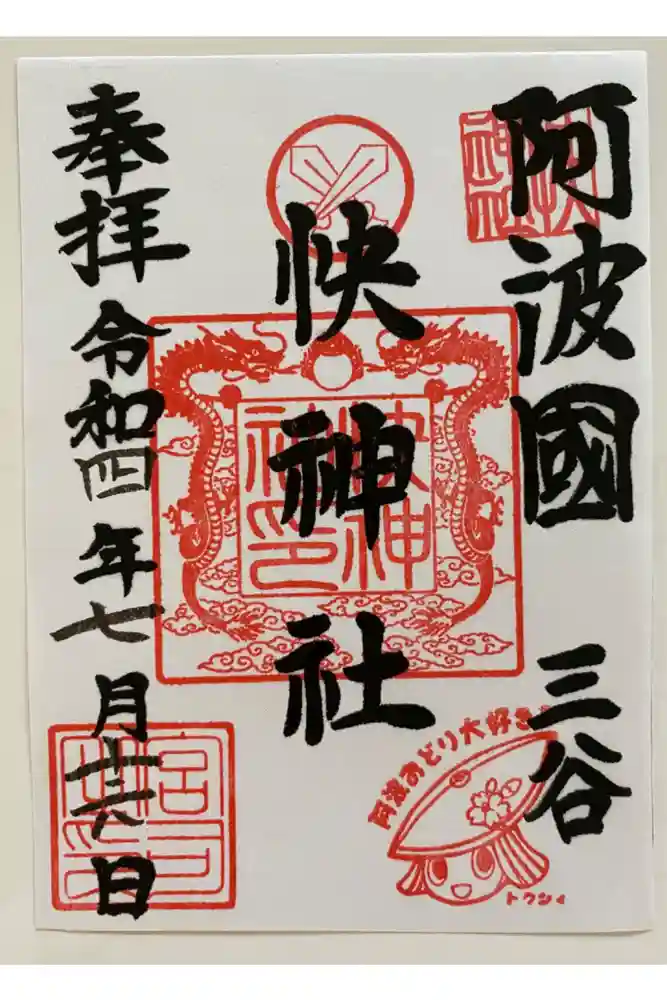 阿波國 三谷
快神社
奉拝 令和四年七月十六日
快神社印
阿波おどり大好き
トクシィ